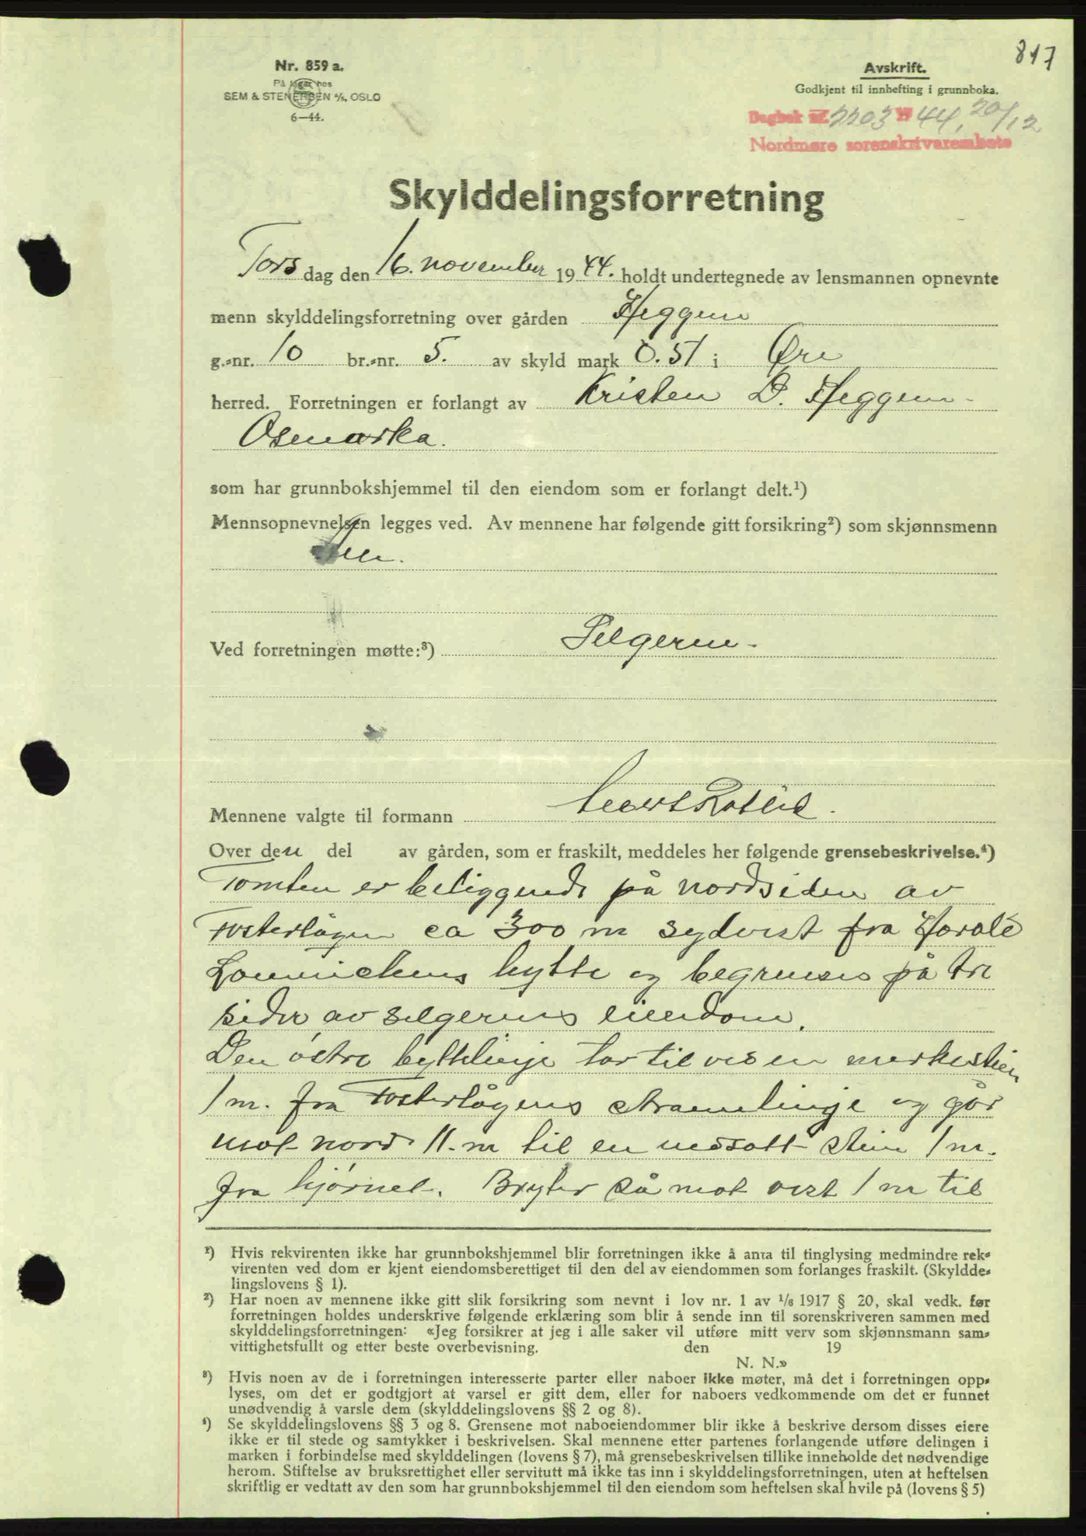 817
Nr. 859 a.
På lager hos
SEM & STENERSEN A/S, OSLO
6—44.
Avskrift.
Godkjent til innhefting i grunnboka.
Dagbok nr. 2203 19 44, 20/12
Nordmøre sorenskrivarembete
Skylddelingsforretning
Tors dag den 16. november 1944. holdt undertegnede av lensmannen opnevnte
menn skylddelingsforretning over gården Heggem
g.-nr. 10 br.-nr. 5. av skyld mark 0.51 i Øre
herred. Forretningen er forlangt av Kristen D. Heggem
Osmarka.
som har grunnbokshjemmel til den eiendom som er forlangt delt.¹)
Mennsopnevnelsen legges ved. Av mennene har følgende gitt forsikring²) som skjønnsmenn
Ved forretningen møtte:³) Selgeren.
Mennene valgte til formann
Over den del av gården, som er fraskilt, meddeles her følgende grensebeskrivelse.⁴)
Tomten er beliggende på nordsiden av
Fosterlågen ca 300 m sydvest fra Harald
hytte og begrenses på tre
sider av selgerens eiendom.
Den østre byttelinje tar til ved en merkestein
1 m. fra Fosterlågens strandlinje og går
mot nord 11. m til en nedsatt stein 1 m.
fra hjørnet. Bryter så mot vest 1 m til
¹) Hvis rekvirenten ikke har grunnbokshjemmel blir forretningen ikke å anta til tinglysing medmindre rek-
virenten ved dom er kjent eiendomsberettiget til den del av eiendommen som forlanges fraskilt. (Skyldde-
lingslovens § 1).
²) Har noen av mennene ikke gitt slik forsikring som nevnt i lov nr. 1 av 1/6 1917 § 20, skal vedk. før
forretningen holdes underskrive følgende erklæring som blir å sende inn til sorenskriveren sammen med
skylddelingsforretningen: «Jeg forsikrer at jeg i alle saker vil utføre mitt verv som skjønnsmann sam-
vittighetsfullt og etter beste overbevisning. den 19
N. N.»
³) Hvis noen av de i forretningen interesserte parter eller naboer ikke møter, må det i forretningen opp-
lyses, om det er godtgjort at varsel er gitt dem, eller for naboers vedkommende om det er funnet
unødvendig å varsle dem (skylddelingslovens §§ 2 og 8).
⁴) Se skylddelingslovens §§ 3 og 8. Grensene mot naboeiendommer blir ikke å beskrive dersom disses eiere
ikke er til stede og samtykker i beskrivelsen. Skal mennene etter partenes forlangende utføre delingen i
marken i forbindelse med skylddelingen (lovens § 7), må grensebeskrivelsen tillike inneholde det nødvendige
herom. Stiftelse av bruksrettighet eller servitutt må ikke tas inn i skylddelingsforretningen, uten at heftelsen
skriftlig er vedtatt av den som har grunnbokshjemmel til den eiendom som heftelsen skal hvile på (lovens § 5)